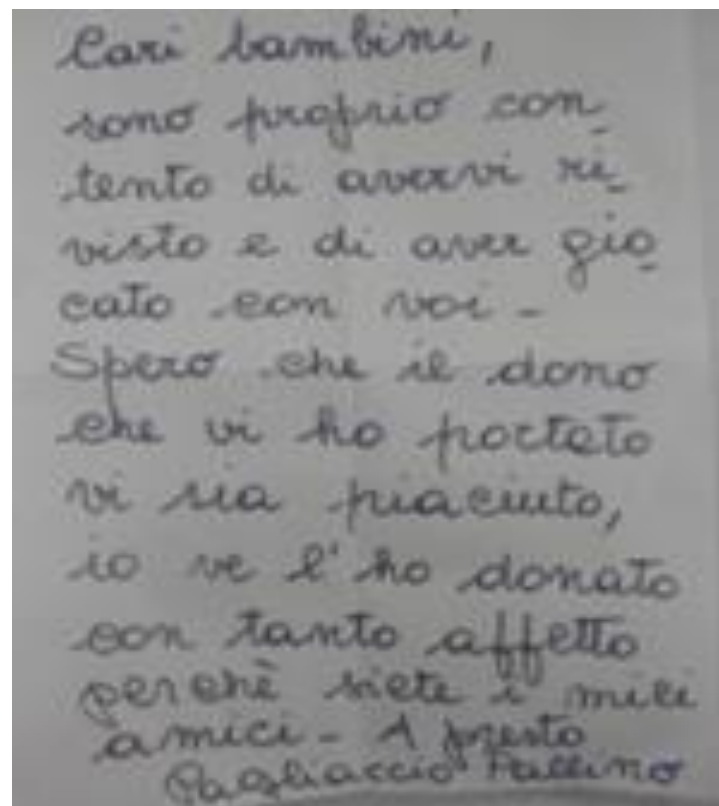 Cari bambini,
sono proprio con_
tento di avervi ri_
visto e di aver gio_
cato con voi -
Spero che il dono
che vi ho portato
vi sia piaciuto,
io ve l'ho donato
con tanto affetto
perchè siete i miei
amici - A presto
Pagliaccio Pallino